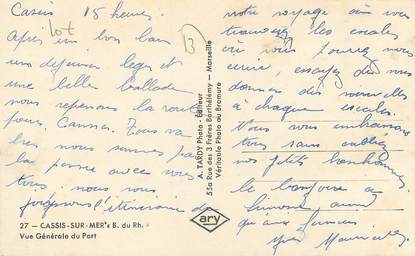 Cassis 15 heures.
lot
13
Après un bon bain
un déjeuner léger et
une belle ballade
nous reprenons la route
pour Cannes. Tout va
bien nous sommes par
la pensée avec vous
tous, nous vous
l'itinéraire de
27 — CASSIS-SUR-MER (B. du Rh.)
Vue Générale du Port
A. TARDY Photo - Éditeur
55a Rue des 3 Frères Barthélemy — Marseille
Véritable Photo au Bromure
ary
notre voyage où vous
trouverez les escales
où vous pourrez nous
écrire, essayez de nous
donner des nouvelles
à chaque escale.
Vous vous embrassons
tous sans oublier
nos petits bonhommes.
le bonjour à
Simone ainsi
qu'aux
Maurice